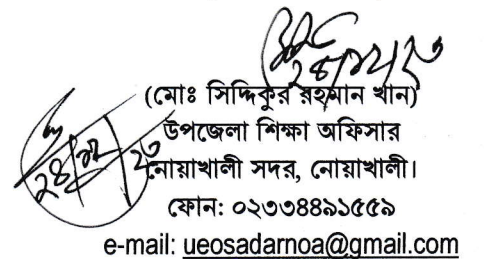 (মোঃ সিদ্দিকুর রহমান খান)
উপজেলা শিক্ষা অফিসার
নোয়াখালী সদর, নোয়াখালী।
ফোন: ০২৩৩৪৪৯১৫৫৯
e-mail: ueosadarnoa@gmail.com